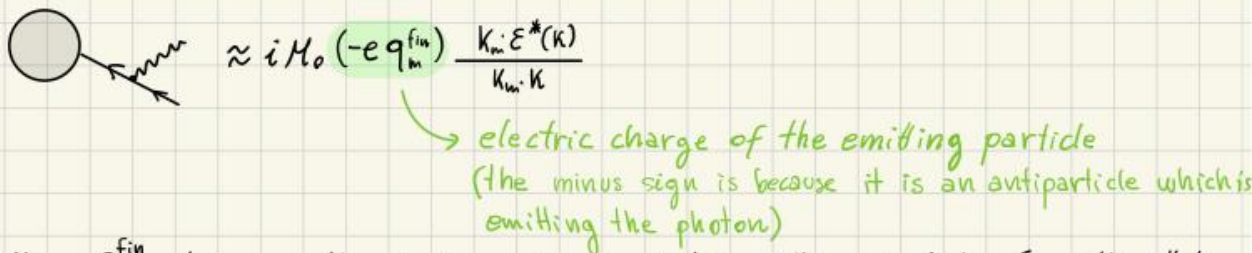 ≈ i M₀ (-e q_m^fin) K_m·ε*(K) / K_m·K
electric charge of the emitting particle
(the minus sign is because it is an antiparticle which is
emitting the photon)
fin